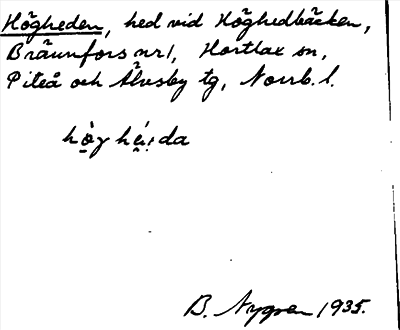 Högheden, hed vid Höghedbäcken,
Bräunfors nr 1, Hortlax sn,
Piteå och Älvsby tg, Norrb. l.
B. Nygren 1935.